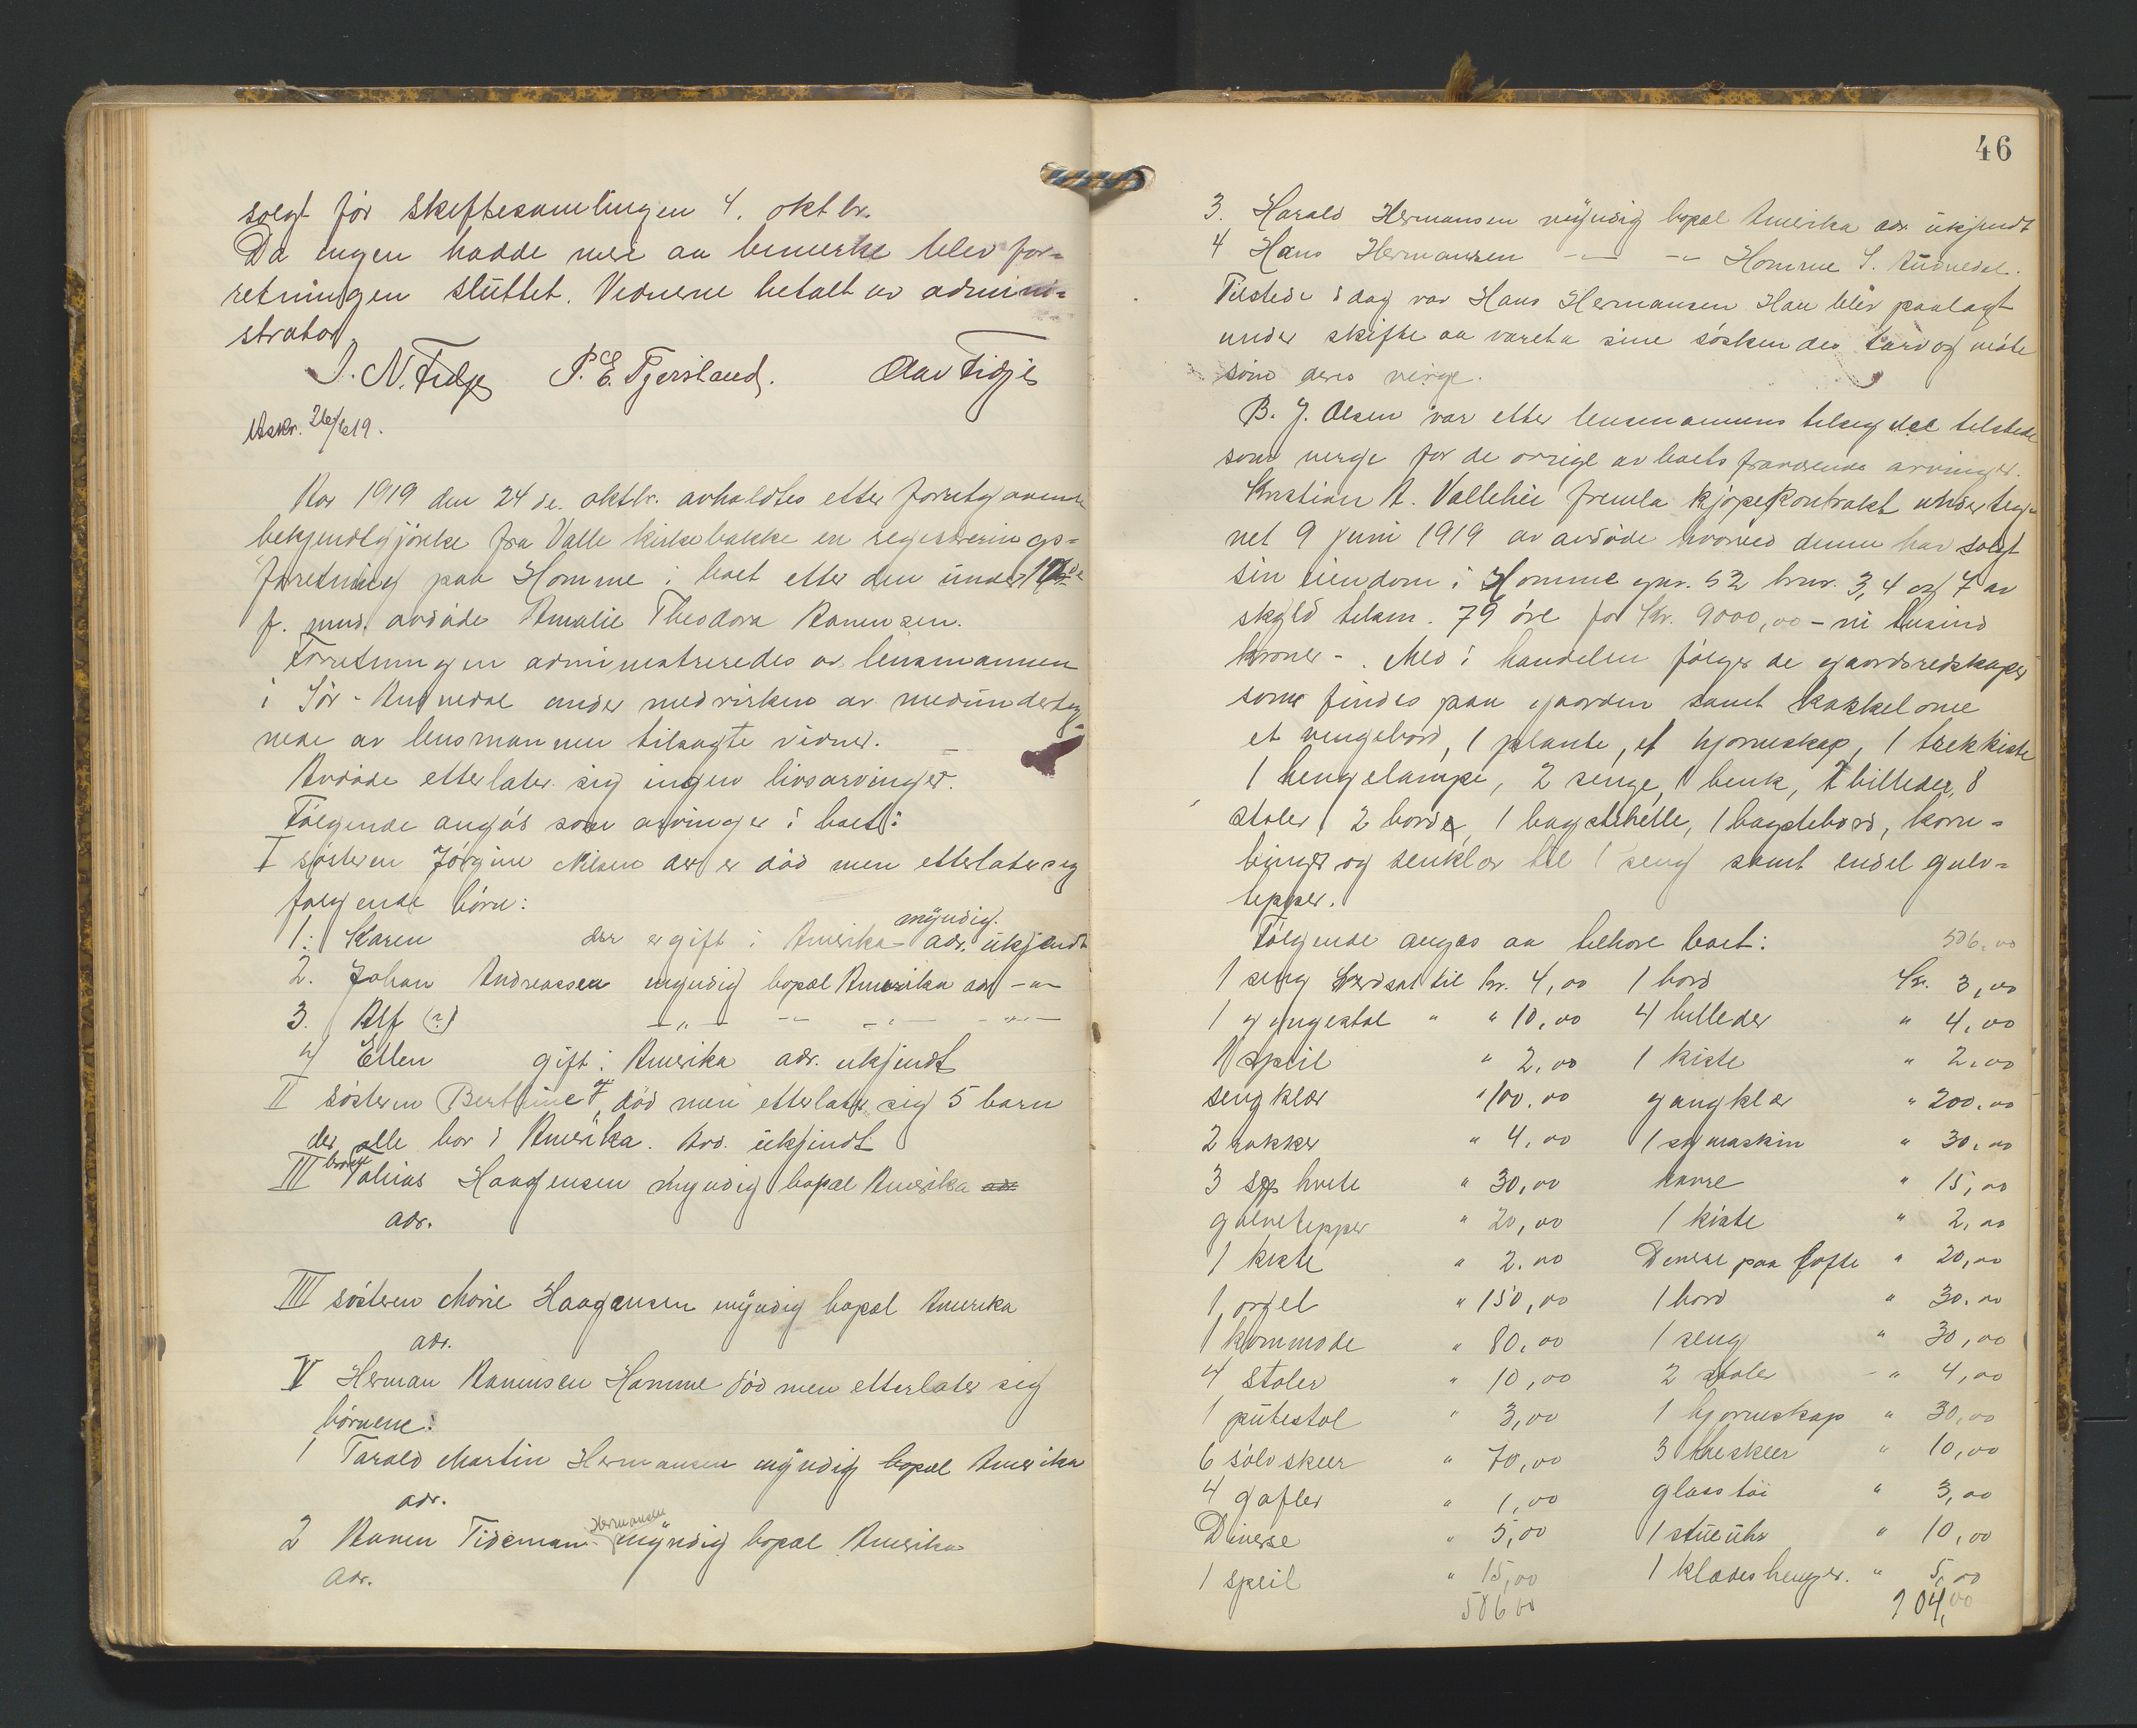 solgt for skiftesamlingen 4. oktbr.
Da ingen hadde mere aa bemerke blev for-
retningen sluttet. Vidnerne betalt av admini-
strator
J. N. Fidje P. E. Tjersland. Aav Fidje
Utskr. 26/6 19.
Aar 1919 den 24de. oktbr. avholdtes etter foretagende
bekjendtgjørelse fra Valle kirkebakke en registrerings-
forretning paa Homme i boet etter den under
f. mnd. avdøde Amalie Theodora Aanensen.
Forretningen administreredes av lensmannen
i Sør-Audnedal under medvirken av medunderteg-
nede av lensmannen tilsagte vidner.
Avdøde etterlater sig ingen livsarvinger.
Følgende angás som arvinger i boet:
I søsteren Jørgine Nilsen der er død men etterlater sig
følgende børn:
1. Karen der er gift i Amerika myndig. adr. ukjendt
2. Johan Andreassen myndig bopæl Amerika adr -"-
3. Alf (?) -"- -"- -"- -"-
4 Ellen gift i Amerika adr. ukjendt
II søsteren Berthine død men etterlater sig 5 barn
der alle bor i Amerika. Adr. ukjendt
III broren Tobias Haagensen myndig bopæl Amerika adr.
adr.
III søsteren Marie Haagensen myndig bopæl Amerika
adr.
V Herman Aanensen Homme død men etterlater sig
børnene:
1 Tarald Martin Hermansen myndig bopæl Amerika
adr.
2 Aanen Tideman Hermansen myndig bopæl Amerika
adr.
46
3. Harald Hermansen myndig bopæl Amerika adr. ukjendt
4 Hans Hermansen -"- -"- Homme S. Audnedal.
Tilstede i dag var Hans Hermansen Han blev paalagt
under skifte aa vareta sine søskendes tarv og møte
som deres verge.
B. J. Olsen var etter lensmannens tilsigelse tilstede
som verge for de øvrige av boets fraværende arvinger.
Kristian A. Vallehei fremla kjøpekontrakt underteg-
net 9 juni 1919 av avdøde hvorved denne har solgt
sin eiendom i Homme gnr. 52 brnr. 3, 4 og 7 av
skyld tilsam. 79 øre for kr. 9000,00 - ni tusind
kroner -. Med i handelen følger de gaardsredskaper
som findes paa gaarden samt kakkelovne
et vengebord, 1 plante, et hjørneskap, 1 trekkiste
1 hengelampe, 2 senge, 1 benk, 2 billeder, 8
stoler, 2 borde, 1 bagstehelle, 1 bagstebord, korn-
binger og senklær til 1 seng samt endel gulv-
tepper.
Følgende angaes aa tilhøre boet: 506.00
1 seng verdsat til kr. 4,00 1 bord Kr. 3,00
1 gyngestol " " 10,00 4 billeder " 4,00
1 speil " 2,00 1 kiste " 2,00
sengklær " 100,00 gangklær " 200,00
2 rokker " 4,00 1 symaskin " 30,00
3 skp hvete " 30,00 havre " 15,00
gulvtepper " 20,00 1 kiste " 2,00
1 kiste " 2,00 Diverse paa lofte " 20,00
1 orgel " 150,00 1 bord " 30,00
1 kommode " 80,00 1 seng " 30,00
4 stoler " 10,00 2 stoler " 4,00
1 putestol " 3,00 1 hjørneskap " 30,00
6 sølvskeer " 70,00 3 theskeer " 10,00
4 gafler " 1,00 glasstøi " 3,00
Diverse " 5,00 1 stueuhr " 10,00
1 speil " 15,00 1 klædeshenger. " 5,00
506 00 904,00